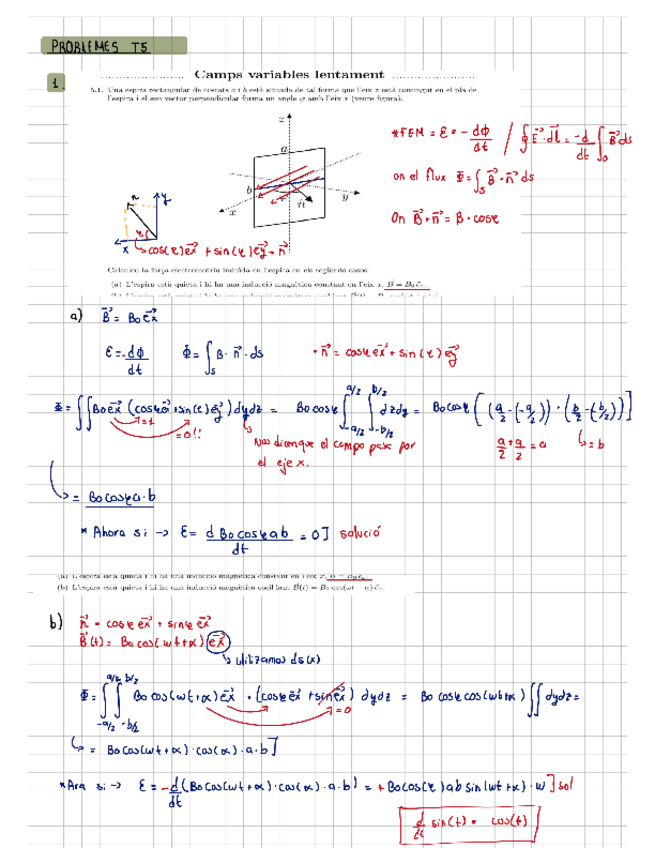 PROBLEMES T5
1.
Camps variables lentament
5.1. Una espira rectangular de costats a i b està situada de tal forma que l'eix z està contingut en el pla de
l'espira i el seu vector perpendicular forma un angle φ amb l'eix x (veure figura).
*FEM = ε = -dΦ/dt / ∮E·dl = -d/dt ∫s B ds
on el flux Φ = ∫s B·n ds
On B·n = B·cosφ
z
a
b
n
y
x
n
y
φ
x
cos(φ)ex + sin(φ)ey = n
Calculeu la força electromotriu induïda en l'espira en els següents casos
(a) L'espira està quieta i hi ha una inducció magnètica constant en l'eix x, B = B₀ex.
a) B = B₀ex
ε = -dΦ/dt Φ = ∫s B·n·ds · n = cosφ ex + sin(φ) ey
Φ = ∬ B₀ex (cosφ ex + sin(φ) ey) dydz = B₀cosφ ∫-a/2 a/2 ∫-b/2 b/2 dzdy = B₀cosφ [(a/2-(-a/2))·(b/2-(-b/2))]
=1
=0!!
Nos dicen que el campo pasa por
el eje x.
a/2 + a/2 = a
=b
= B₀cosφa·b
* Ahora si → ε = d B₀cosφab/dt = 0] solució
(a) L'espira està quieta i hi ha una inducció magnètica constant en l'eix x, B = B₀ex.
(b) L'espira està quieta i hi ha una inducció magnètica oscil·lant, B(t) = B₀ cos(ωt + α) ex.
b) n = cosφ ex + sinφ ex
B(t) = B₀ cos(wt+α) ex
utilizamos ds(x)
Φ = ∫-a/2 a/2 ∫-b/2 b/2 B₀ cos(wt+α)ex · (cosφ ex + sinφ ex) dydz = B₀ cosφ cos(wt+α) ∬ dydz =
=0
= B₀ cos(wt+α)·cos(α)·a·b]
*Ara si → ε = -d/dt (B₀ cos(wt+α)·cos(α)·a·b) = + B₀cos(φ)ab sin(wt+α)·w] sol
d/dt sin(t) = cos(t)